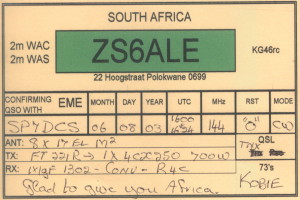 SOUTH AFRICA
2m WAC
2m WAS
ZS6ALE
KG46rc
22 Hoogstraat Polokwane 0699
CONFIRMING QSO WITH EME MONTH DAY YEAR UTC MHz RST MODE
SP7DCS 06 08 03 1600 1654 144 "O" CW
ANT: 8 X 17 EL M² QSL
TX: FT 221R → 1X 4CX250 700W
RX: Mgf 1302 - CONV - R4C 73's
Glad to give you Africa. KOBIE